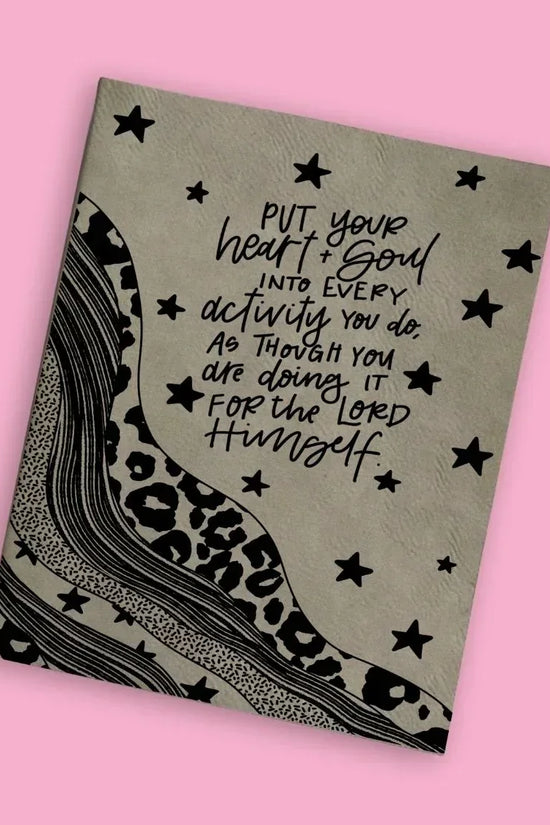 PUT YOUR
heart + Soul
INTO EVERY
activity YOU do,
AS THOUGH YOU
are doing IT
FOR the LORD
Himself.